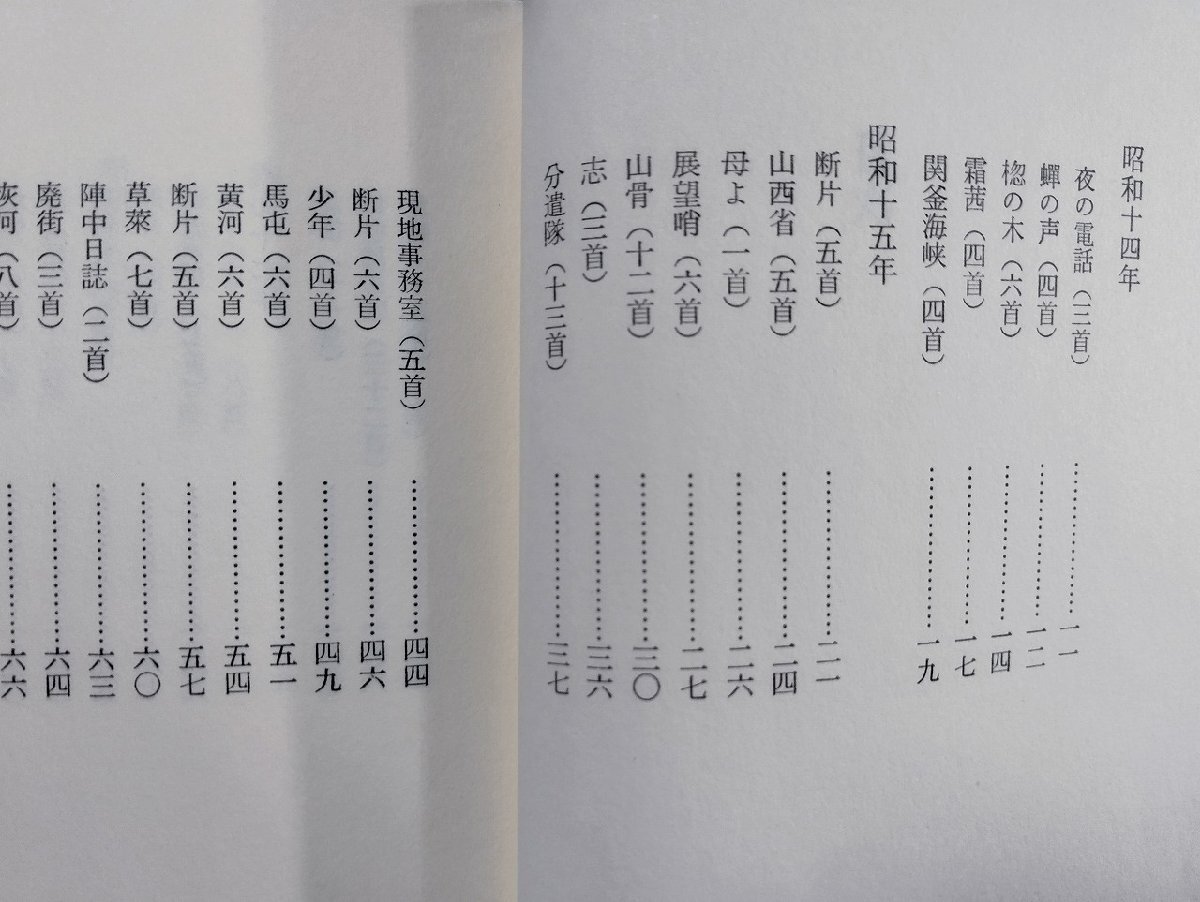 昭和十四年
夜の電話（三首）……………………一一
蟬の声（四首）……………………一二
楤の木（六首）……………………一四
霜茜（四首）……………………一七
関釜海峡（四首）……………………一九
昭和十五年
断片（五首）……………………二一
山西省（五首）……………………二四
母よ（一首）……………………二六
展望哨（六首）……………………二七
山骨（十二首）……………………三〇
志（三首）……………………三六
分遣隊（十三首）……………………三七
現地事務室（五首）……………………四四
断片（六首）……………………四六
少年（四首）……………………四九
馬屯（六首）……………………五一
黄河（六首）……………………五四
断片（五首）……………………五七
草萊（七首）……………………六〇
陣中日誌（二首）……………………六三
廃街（三首）……………………六四
灰河（八首）……………………六六